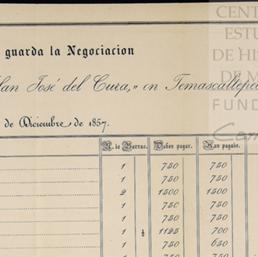 CENT
ESTU
DE HIS
DE M
FUND
guarda la Negociacion
San José del Cura," en Temascaltepec
de Diciembre de 1857.
N. de Barras. Deben pagar. Han pagado.
1 750 750
1 750 750
2 1500 1500
1 750 750
1 750 750
1 ½ 1125 700
1 750 650
1 750 750